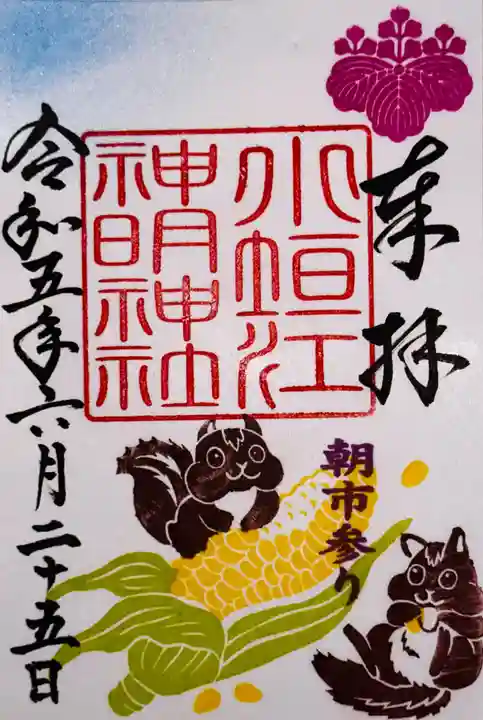 奉拝
小垣江
神明神社
朝市参り
令和五年六月二十五日